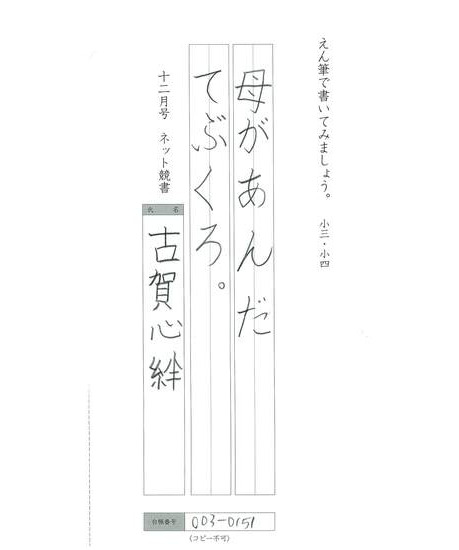 えん筆で書いてみましょう。 小三・小四
母があんだ
てぶくろ。
十二月号 ネット競書
氏名
古賀心絆
台帳番号 003-0151
(コピー不可)